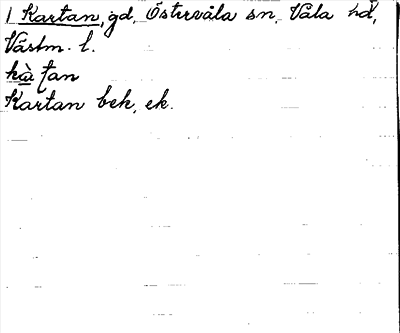 1 Kartan, gd, Östervåla sn, Våla hd,
Västm. l.
Kartan bek, ek.